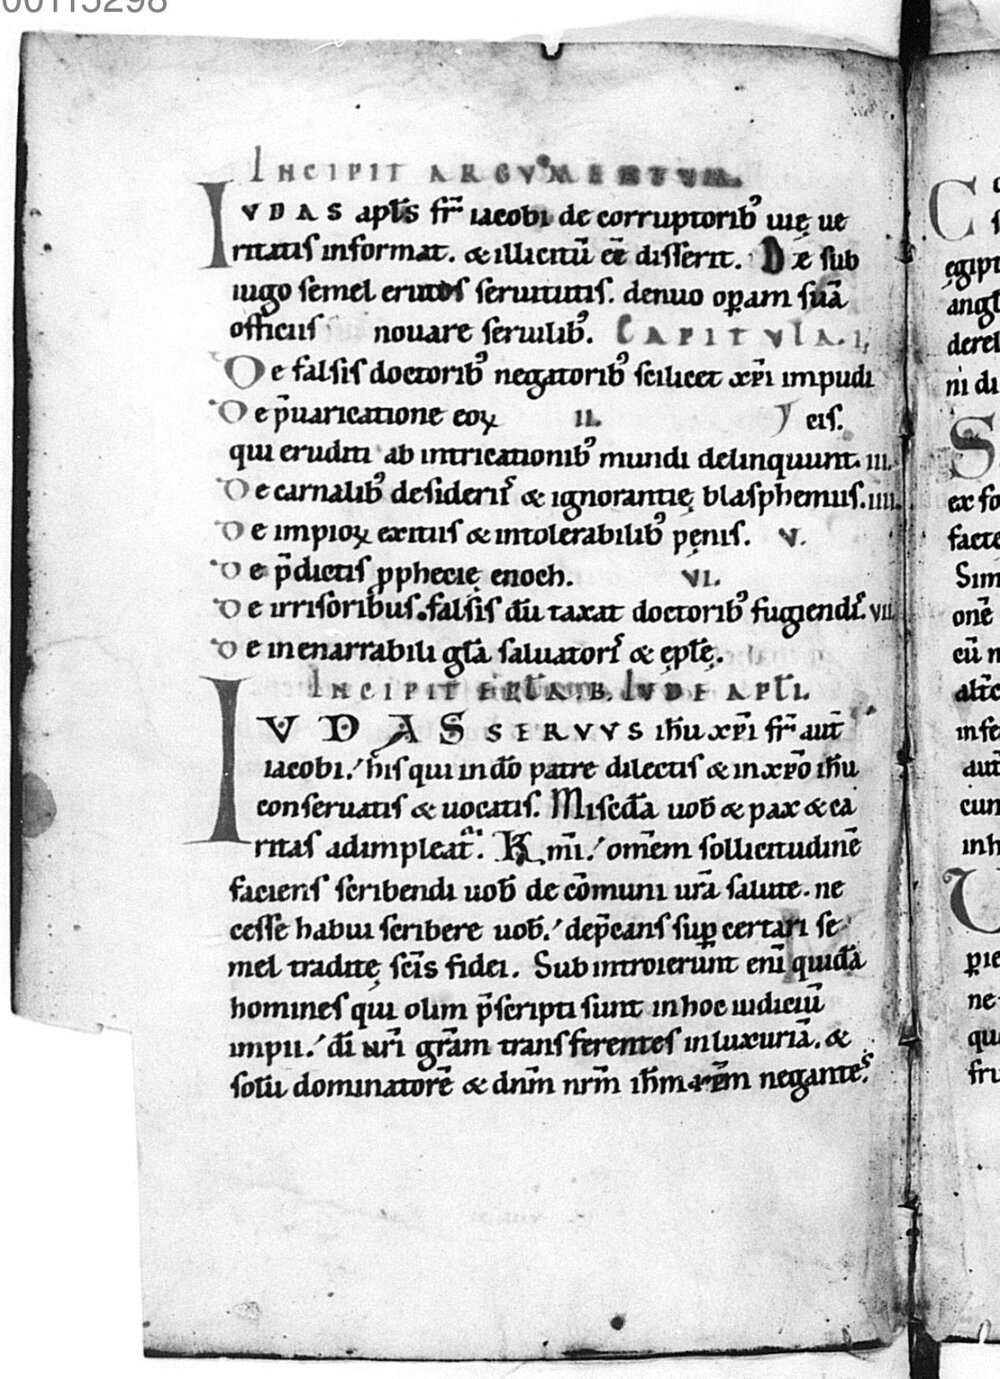 00115298
INCIPIT ARGVMENTVM.
IVDAS apłs fr̄ iacobi de corruptorib᾿ uię ue
ritatis informat. & illicitū eē disserit. De sub
iugo semel erutos seruitutis. denuo oꝑam suā
officiis nouare seruilib᾿. CAPITVLA. I,
De falsis doctorib᾿ negatorib᾿ scilicet xp̄i impudi
De p̄uaricatione eoꝝ II. cis.
qui eruditi ab intricationib᾿ mundi delinquunt. III.
De carnalib᾿ desiderii᾿ & ignorantię blasphemiis. IIII.
De impioꝝ exitus & intolerabilib᾿ pęnis. V.
De p̄dictis ꝓphecię enoch. VI.
De irrisoribus. falsis dū taxat doctorib᾿ fugiendi᾿. VII
De inenarrabili gła saluatori᾿ & ępłę.
INCIPIT EPŁA B. IVDE APŁI.
IVDAS SERVVS ih̄u xp̄i fr̄ aut̄
iacobi. his qui in do᷎ patre dilectis & in xp̄o ih̄u
conseruatis & uocatis. Misc̄da uob̄ & pax & ca
ritas adimpleat᷑. K mi. om̄em sollicitudinē
faciens scribendi uob̄ de cōmuni ur̄a salute. ne
cesse habui scribere uob̄. dep̄cans suꝑ certari se
mel traditę sc̄is fidei. Subintroierunt eni᷎ quidā
homines qui olim p̄scripti sunt in hoc iudiciū
impii. di᷎ nr̄i gr̄am transferentes in luxuriā. &
solū dominatorē & dn̄m nr̄m ih̄m xp̄m negantes.